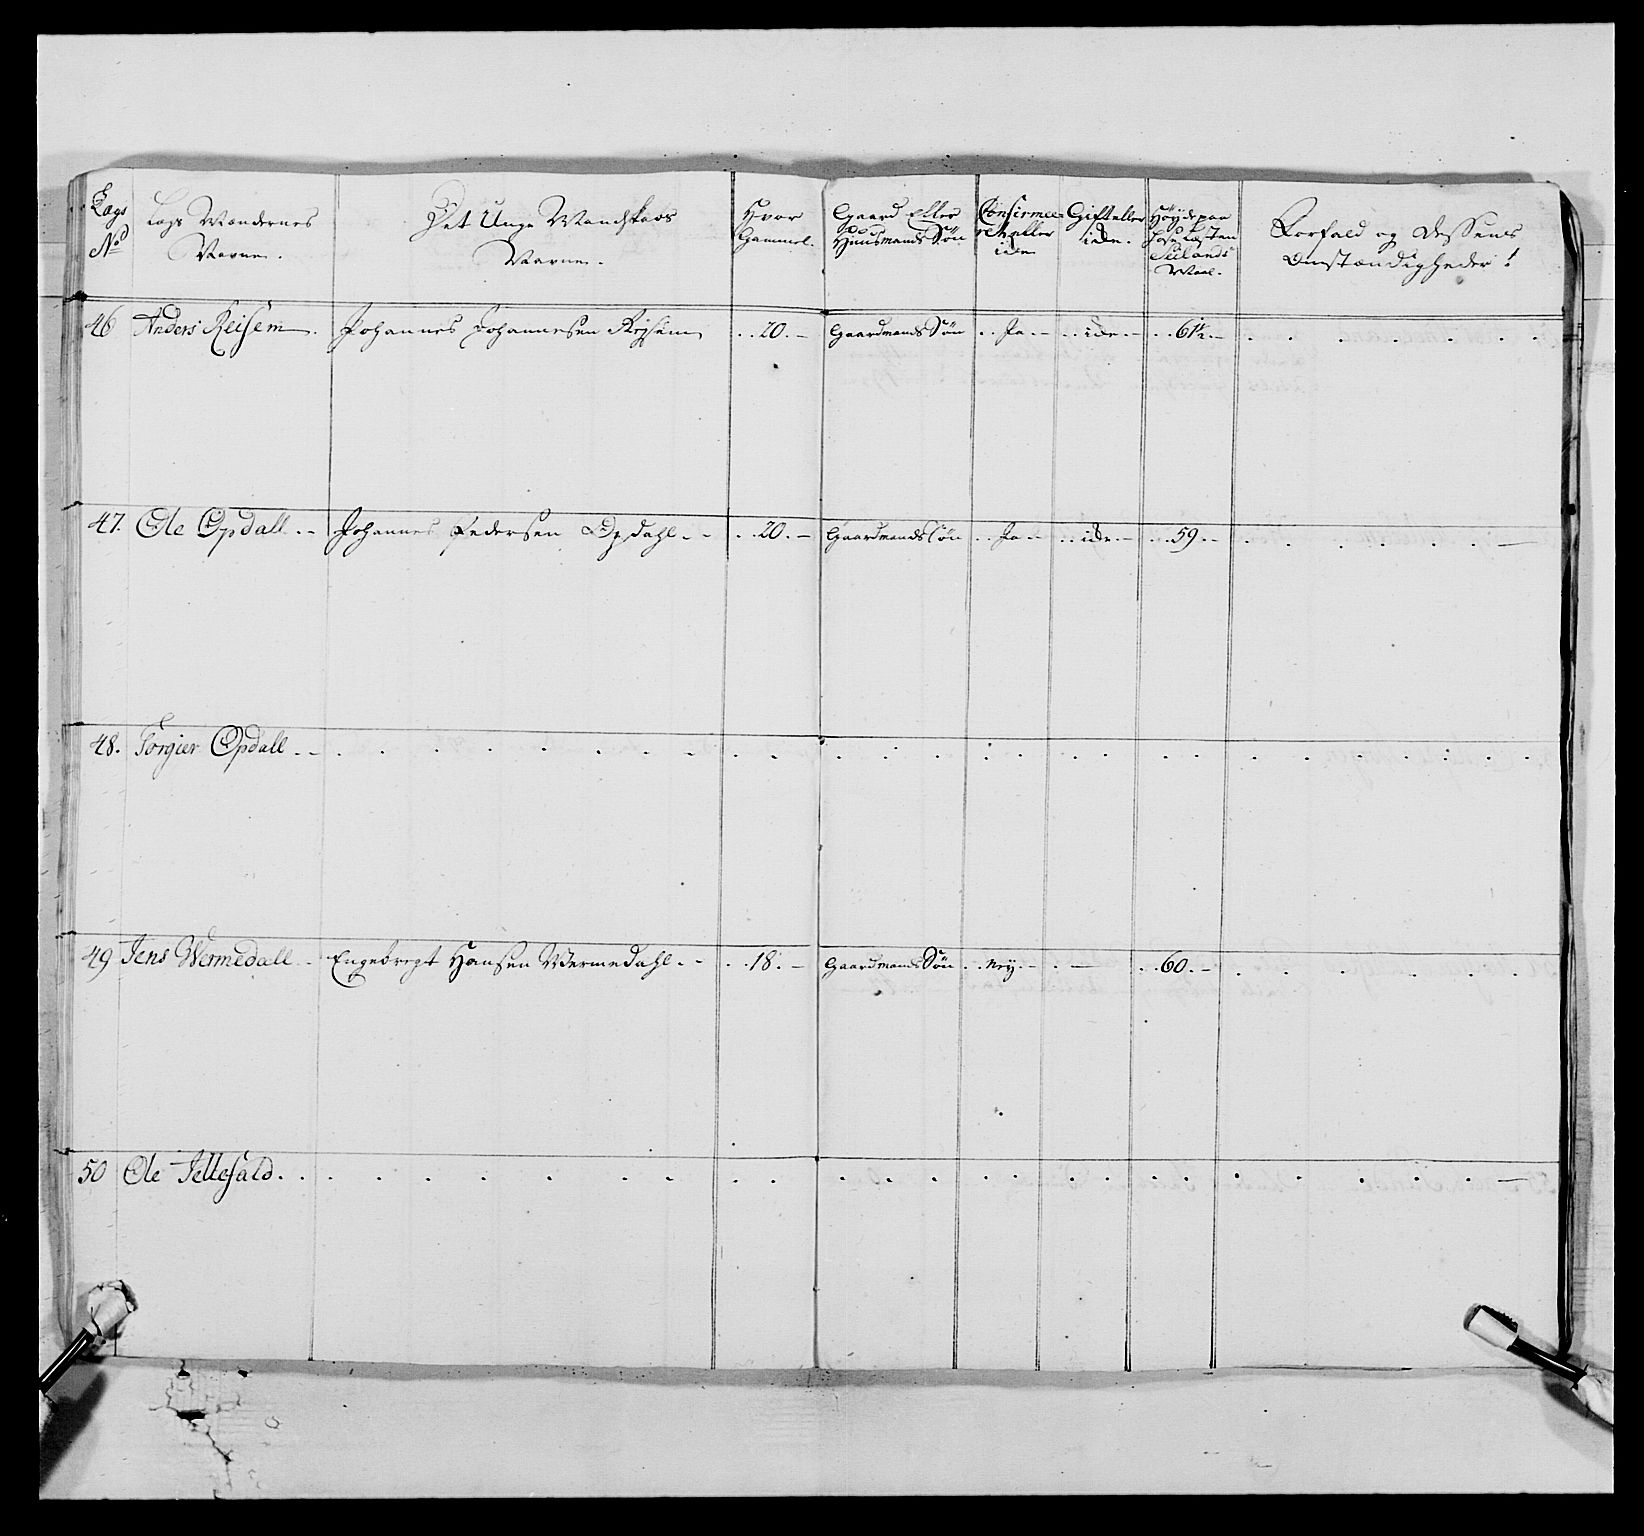 Lægs
No
Lægs Mændernes
Navne.
Det Unge Mandskabs
Navne.
Hvor
Gammel.
Gaard Eller
Huusmands Søn
Confirmee-
ret eller
icke
Gift eller
icke.
Høyde paa
Sælands
Maal.
Forfald og dessens
Omstændigheder!
46 Anders Reisem. Johannes Johannesen Rejsem ..20.- Gaardmands Søn ..Ja.- ..icke.- ..61½.-
47. Ole Opdall.- Johannes Pedersen Opdahl.- ..20.- Gaardmands Søn ..Ja.- ..icke.- ..59.-
48. Torgier Opdall.-
49 Jens Wermedall.- Engebregt Hansen Wermedahl.- ..18.- Gaardmands Søn ..Nej.- ..60.-
50 Ole Jellesald.